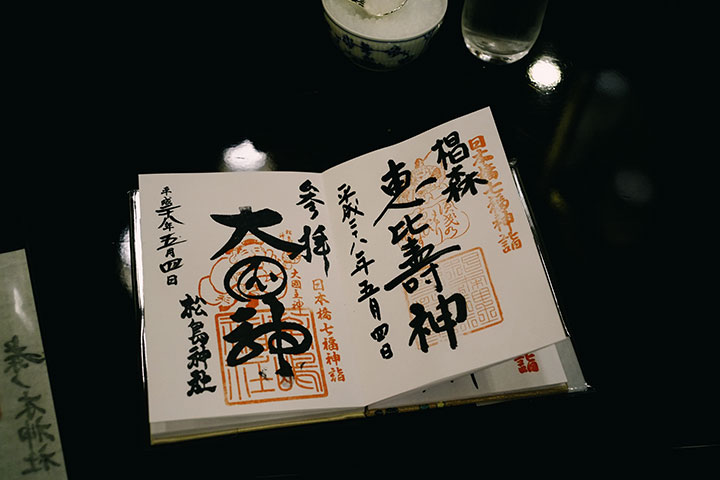 日本橋七福神詣
椙森
恵比壽神
平成二十八年五月四日
日本橋七福神詣
参拝
大國主神
大国神
松島神社
平成二十八年五月四日
詣
茶ノ木神社